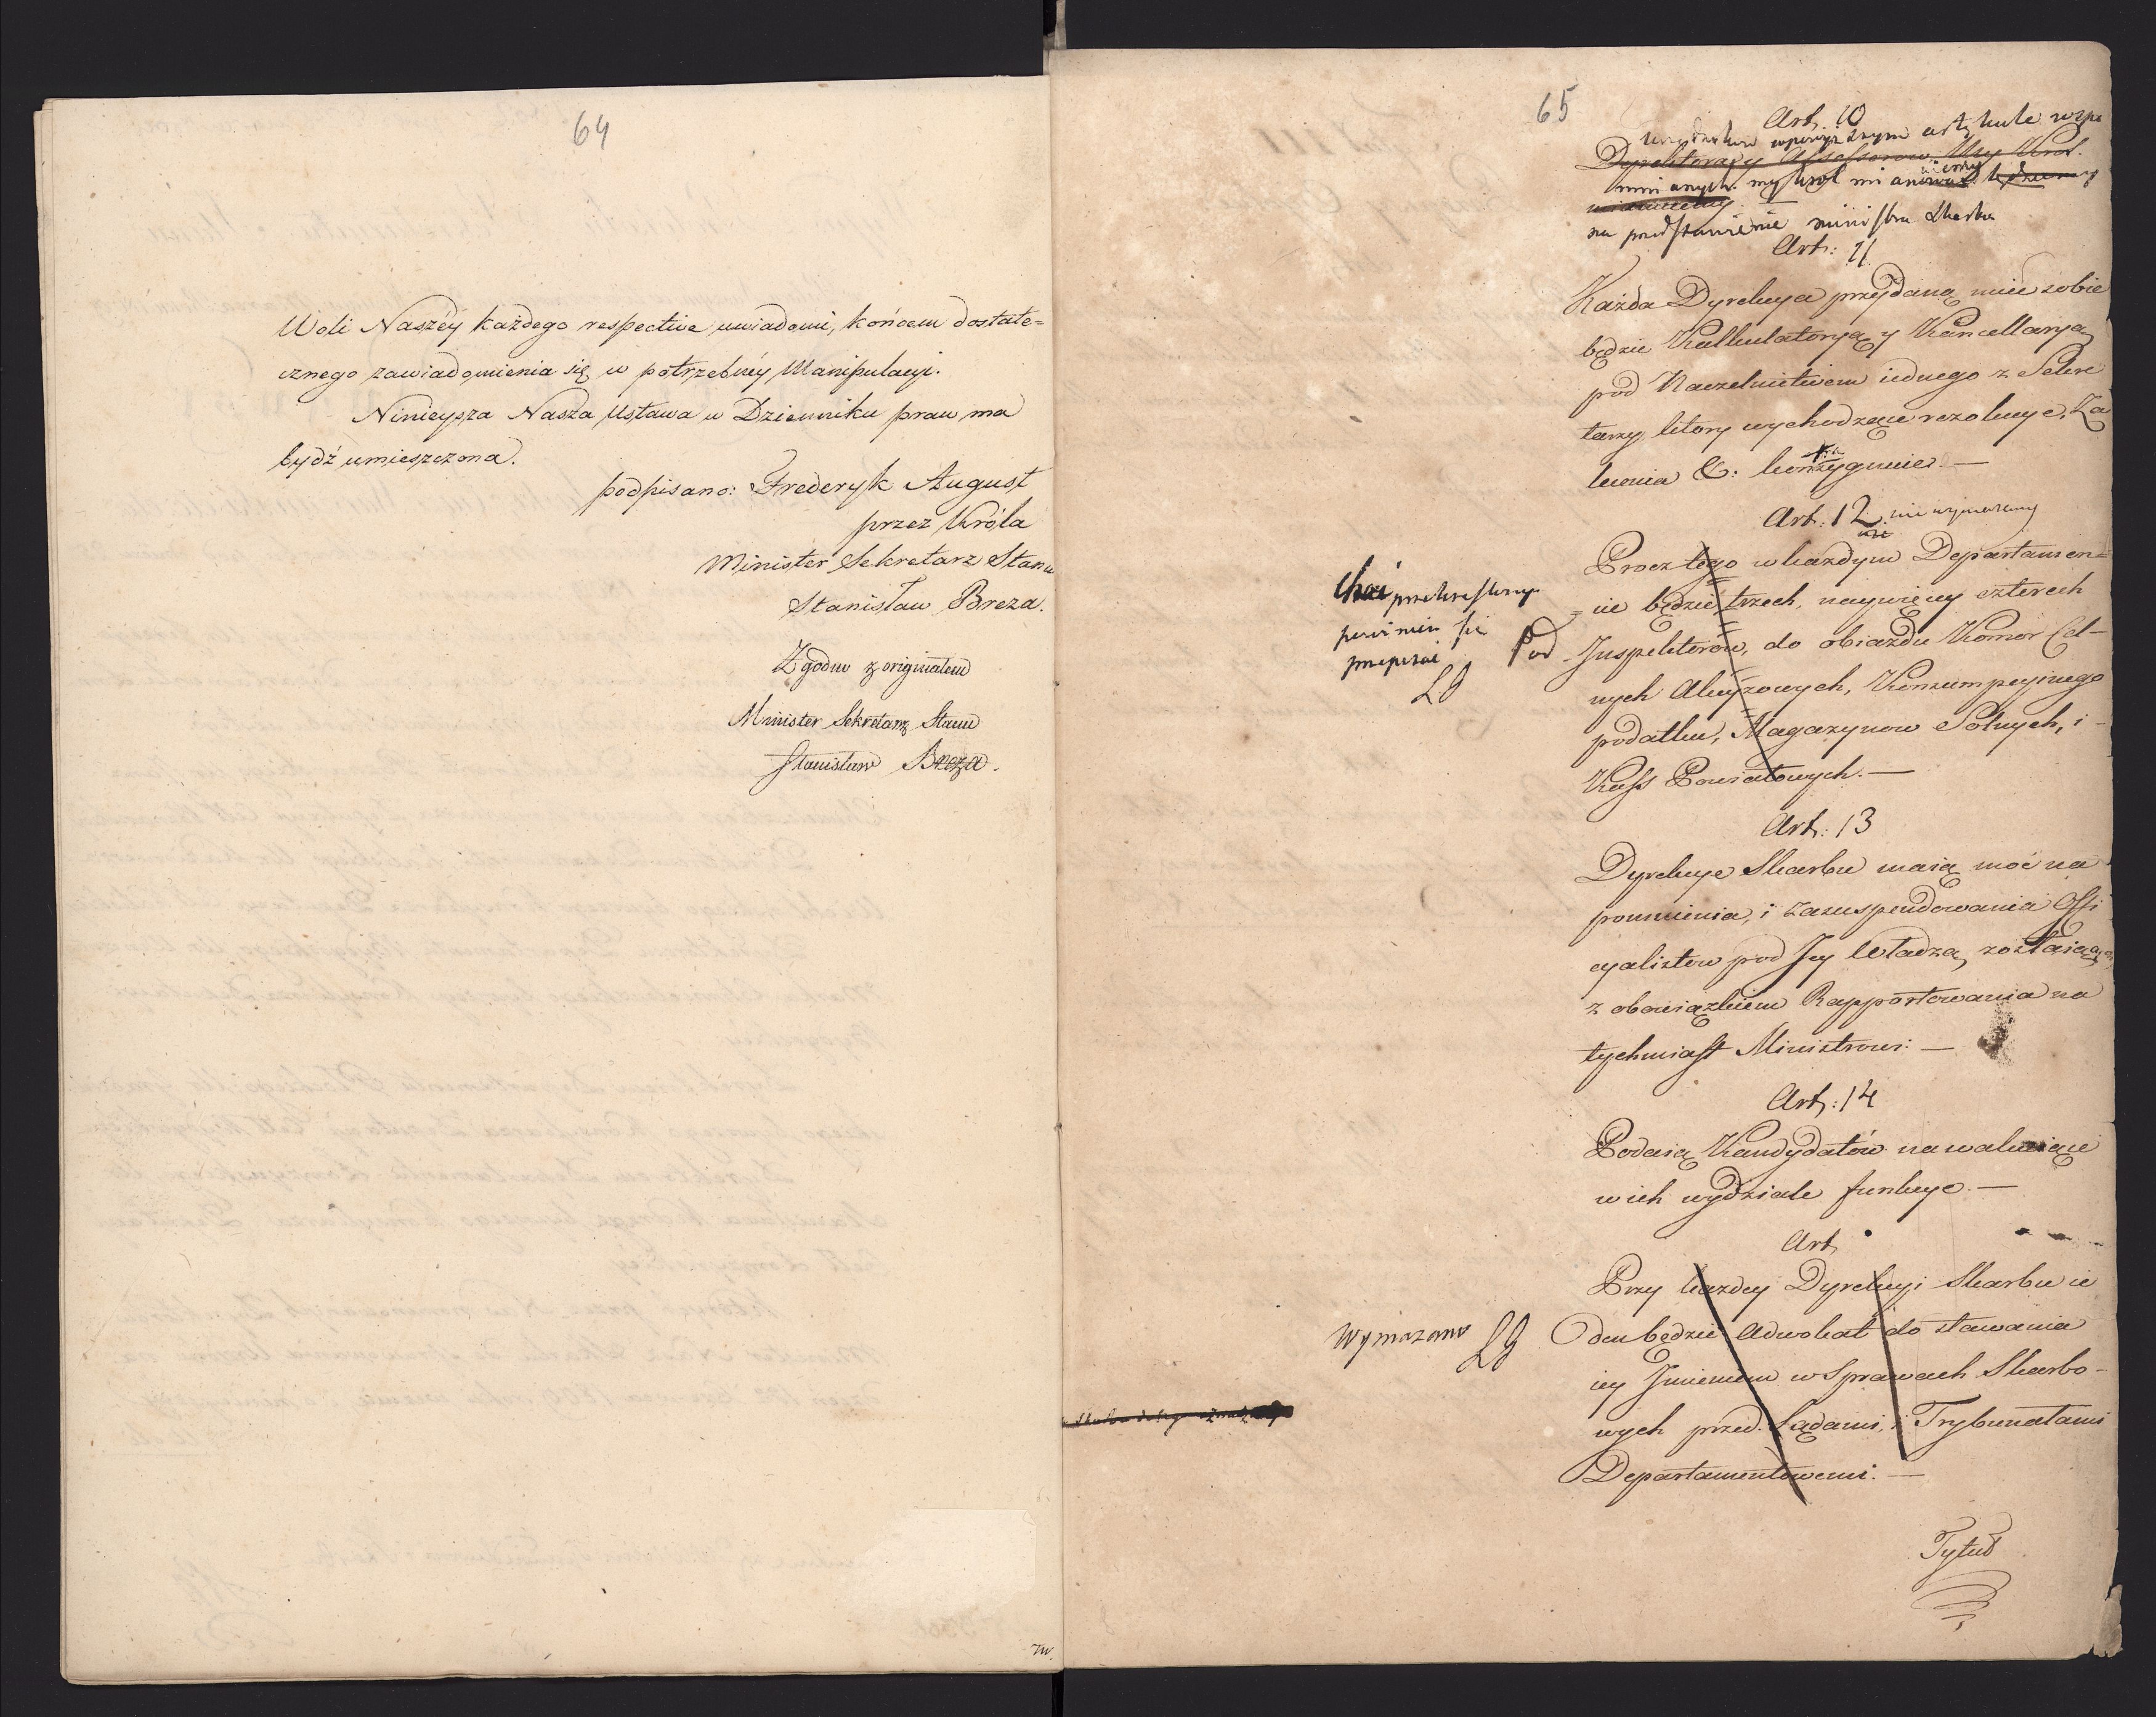 64
Woli Naszéy każdego respective uwiadomi, końcem dostate=
cznego zawiadomienia się w potrzebnéy Manipulacyi.
Ninieysza Nasza Ustawa w Dzienniku praw ma
bydź umieszczona.
podpisano: Frederyk August
przez Króla
Minister Sekretarz Stanu
Stanisław Breza.
Zgodno z originałem
Minister Sekretarz Stanu
Stanisław Breza.
65
Art. 10
artykule wspo
Dyrektorow y Assessorow My Krol.
mnianych my krol mianować będziemy
na przedstawienie ministra Skarbu
Art: 11
Każda Dyrekcya przydaną mieć sobie
będzie Kalkulatoryą y Kancellaryą
pod Naczelnictwem iednego z Sekre
tarzy, ktory wychodzące rezolucye, Za
lecenia &: kontrsygnuie. —
Art: 12. nie wymazany
Procz tego w każdym Departamen=
=cie będzie trzech, naywięcy czterech
Pod Inspektorów, do obiazdu Komor Cel-
nych Akcyzowych, Konsumpcyinego
podatku, Magazynow Solnych, i -
Kass Powiatowych. —
choć przekreślony
powinien się
przepisać
LG
Art: 13
Dyrekcye Skarbu maią moc na
pomnienia, i zasuspendowania Offi
cyalistow pod Jey władzą zostaiących
z obowiązkiem Rapportowania na
tychmiast Ministrowi: —
Art: 14
Podaią Kandydatów na wakuiące
w ich wydziale funkcye. —
Art
Przy każdey Dyrekcyi Skarbu ie
den będzie Adwokat do stawania
iey Imieniem w Sprawach Skarbo-
wych przed Sądami, i Trybunałami
Departamentowemi. —
Wymazano LG
Tytuł